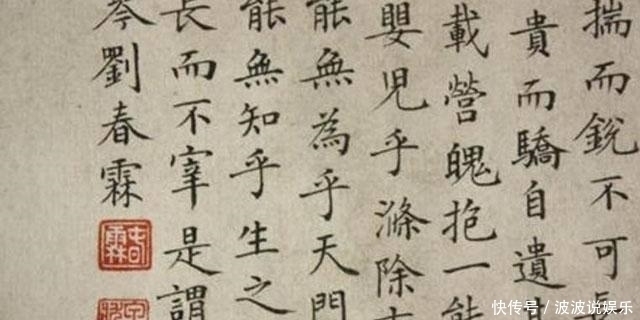 揣而銳不可
貴而驕自遺
載營魄抱一能
嬰兒乎滌除
能無為乎天門
能無知乎生之
長而不宰是謂
岑劉春霖
春霖
快传号／波波说娱乐